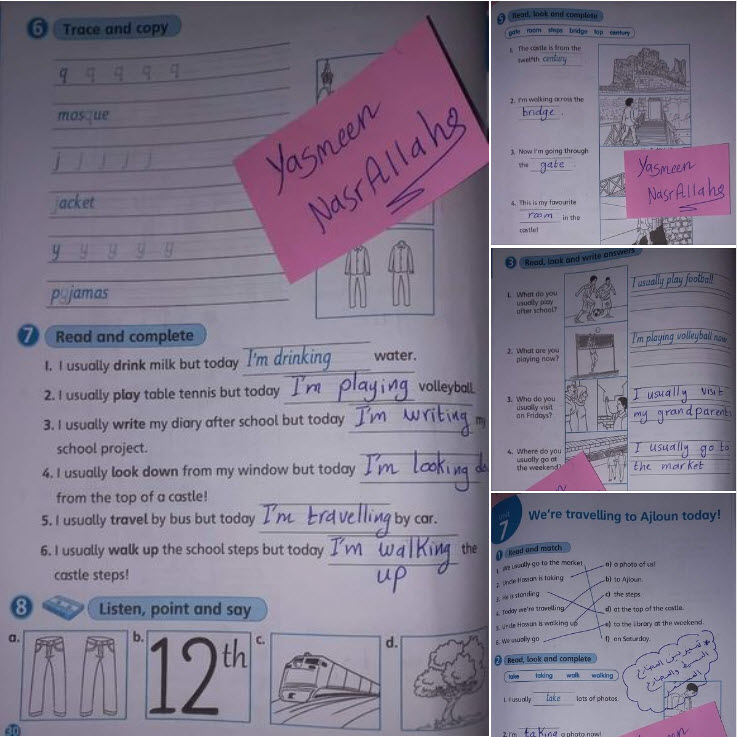 6 Trace and copy
q q q q q
mosque
j j j j j
jacket
y y y y y
pyjamas
Yasmeen
NasrAllahs
7 Read and complete
1. I usually drink milk but today I'm drinking water.
2. I usually play table tennis but today I'm playing volleyball.
3. I usually write my diary after school but today I'm writing my
school project.
4. I usually look down from my window but today I'm looking
from the top of a castle!
5. I usually travel by bus but today I'm travelling by car.
6. I usually walk up the school steps but today I'm walking the
up
castle steps!
8 Listen, point and say
a. b. c. d.
12th
30
5 Read, look and complete
gate room steps bridge top century
1. The castle is from the
twelfth century
2. I'm walking across the
bridge.
3. Now I'm going through
the gate.
4. This is my favourite
room in the
castle!
Yasmeen
NasrAllahs
3 Read, look and write answers
1. What do you
usually play
after school?
I usually play football
2. What are you
playing now?
I'm playing volleyball now
3. Who do you
usually visit
on Fridays?
I usually visit
my grandparents
4. Where do you
usually go at
the weekend?
I usually go to
the market
7 We're travelling to Ajloun today!
1 Read and match
1. We usually go to the market
2. Uncle Hassan is taking
3. He is standing
4. Today we're travelling
5. Uncle Hassan is walking up
6. We usually go
a) a photo of us!
b) to Ajloun.
c) the steps.
d) at the top of the castle.
e) to the library at the weekend.
f) on Saturday.
2 Read, look and complete
take taking walk walking
1. I usually take lots of photos.
2. I'm taking a photo now!